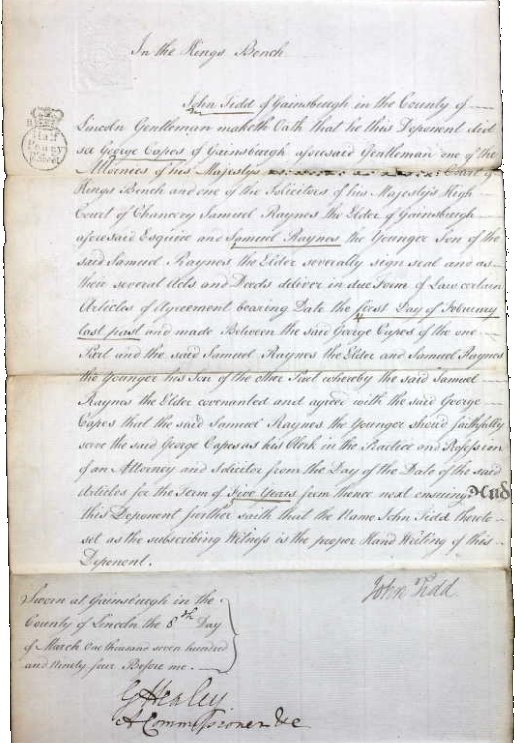 In the Kings Bench
John Tidd of Gainsbrugh in the County of
Lincoln Gentleman maketh Oath that he this Deponent did
see George Capes of Gainsbrugh aforesaid Gentleman one of the
Attornies of his Majestys Court of
Kings Bench and one of the Solicitors of his Majesty's High
Court of Chancery Samuel Raynes the Elder of Gainsbrugh
aforesaid Esquire and Samuel Raynes the Younger Son of the
said Samuel Raynes the Elder severally sign seal and as
their several Acts and Deeds deliver in due Form of Law certain
Articles of Agreement bearing Date the first Day of February
last past and made Between the said George Capes of the one
Part and the said Samuel Raynes the Elder and Samuel Raynes
the Younger his Son of the other Part whereby the said Samuel
Raynes the Elder covenanted and agreed with the said George
Capes that the said Samuel Raynes the Younger should faithfully
serve the said George Capes as his Clerk in the Practice and Profession
of an Attorney and Solicitor from the Day of the Date of the said
Articles for the Term of Five Years from thence next ensuing. And
this Deponent further saith that the Name John Tidd thereto
set as the subscribing Witness is the proper Hand Writing of this
Deponent.
John Tidd
Sworn at Gainsbrugh in the
County of Lincoln the 8th Day
of March One thousand seven hundred
and Ninety four Before me.
G Healey
A Commissioner &c